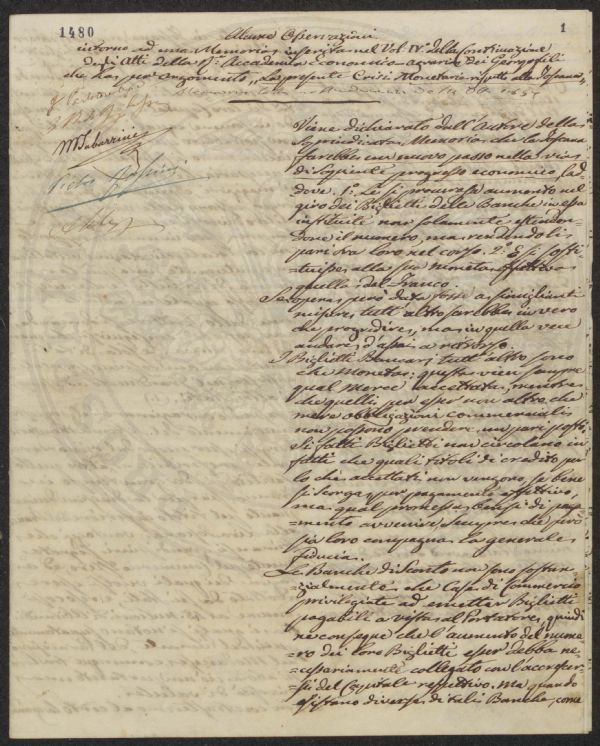 1480
1
Alcune Osservazioni
intorno ad una Memoria inserita nel Vol. IV. della Continuazione
degli Atti della Accademia economico agraria dei Georgofili
che ha per argomento, La presente Crisi Monetaria rispetto alla Toscana,,
Viene dichiarato dall'Autore della
Memoria che la Toscana
farebbe un nuovo passo nella via
di progresso economico, lad
dove 1.° Le si procurasse aumento nel
giro dei Biglietti delle Banche in essa
instituite non solamente estenden-
done il numero, ma rendendoli
pari tra loro nel corso. 2.° E si sosti-
tuisse alla sua moneta effettiva
quella del Franco.
Se opera però data fosse a simiglianti
misure tutt'altro sarebbe in vero
che progredire, ma in quella vece
andare d'assai a ritroso.
I Biglietti Bancari tutt'altro sono
che Moneta; questa vien sempre
qual Merce accettata, mentre
che quelli, per esser non altro che
mere obbligazioni commerciali
non possono prendere un pari posto.
Sì fatti Biglietti non circolano in-
fatti che quali titoli di credito per
lo che accettati non vengono, se bene
si scorga, per pagamento effettivo,
ma qual promessa bensì di paga-
mento avvenire, sempre che però
sia loro compagna la generale
fiducia.
Le Banche di Sconto non sono sostan-
zialmente che Case di Commercio
privilegiate ad emetter Biglietti
pagabili a vista al Portatore, quindi
ne consegue che l'aumento del nume-
ro dei loro Biglietti esser debba ne-
cessariamente collegato con l'accrescer-
si del Capitale respettivo. Ma quando
esistano diverse di tali Banche, come